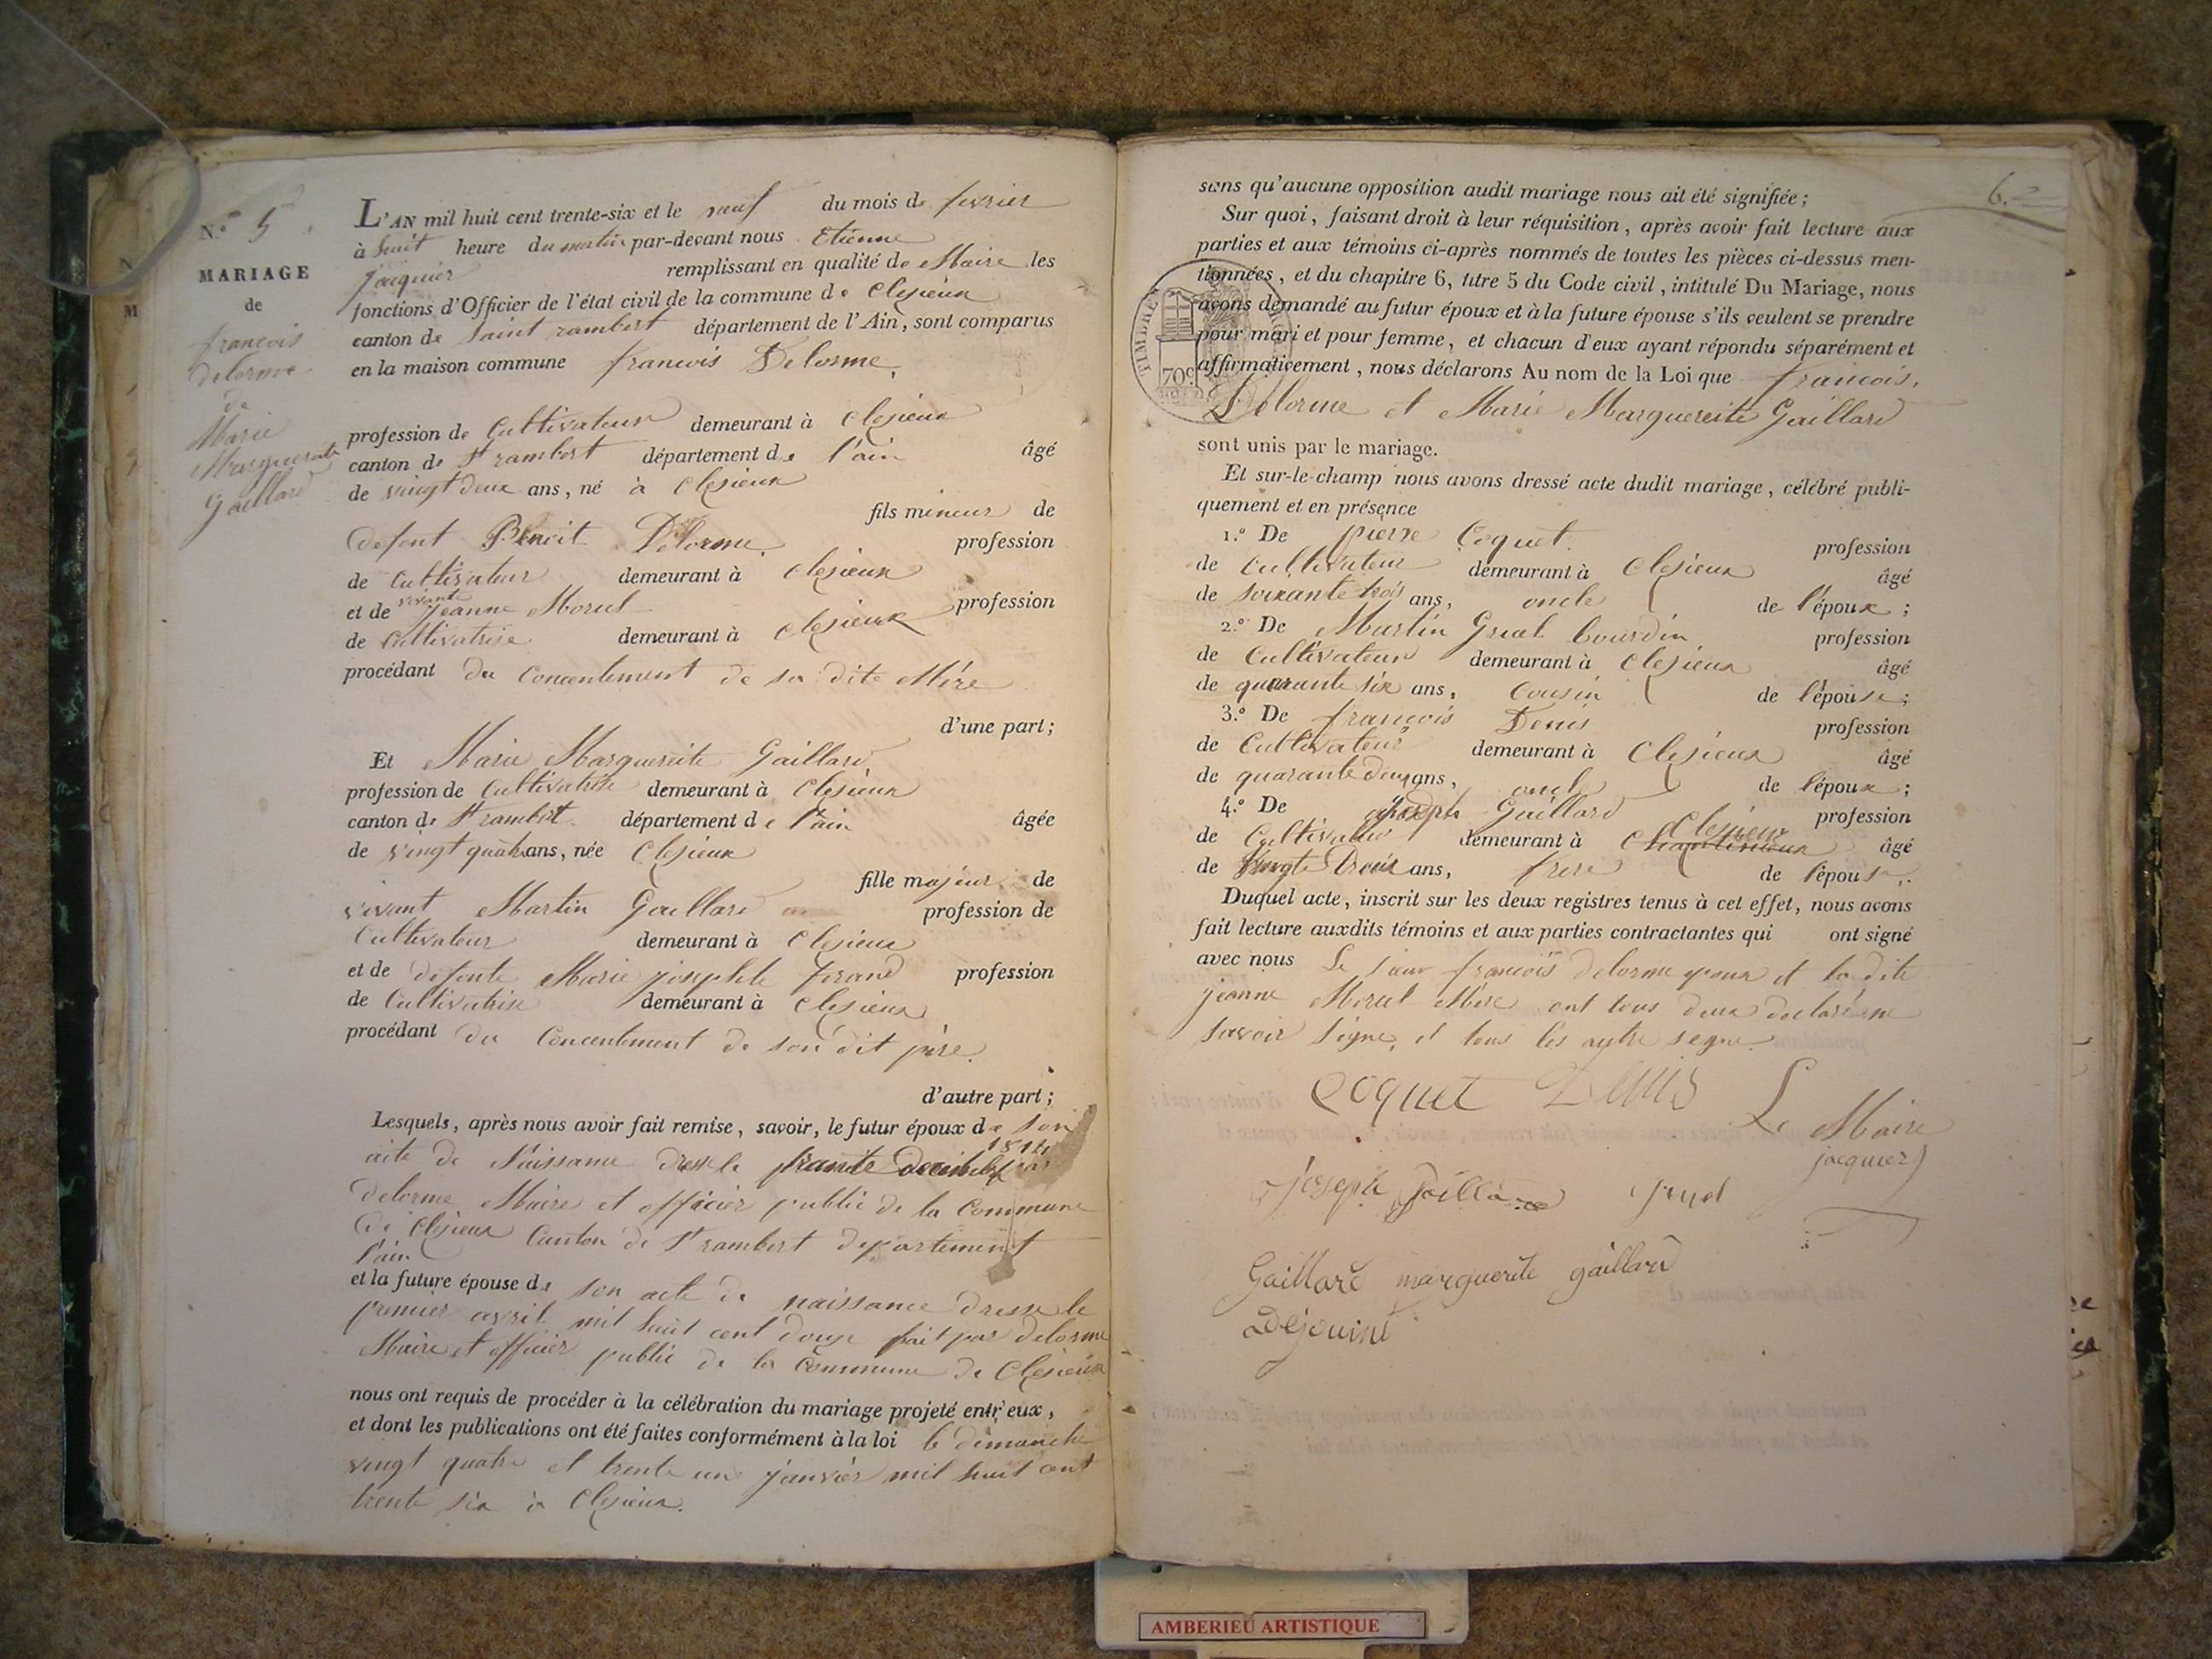 N.o 5
MARIAGE
de
francois
delorme
de
Marie
Marguereite
gaillard
L'AN mil huit cent trente-six et le neuf du mois de fevrier
à huit heure du matin par-devant nous Etienne
jacquier remplissant en qualité de Maire les
fonctions d'Officier de l'état civil de la commune de Clesieux
canton de Saint rambert département de l'Ain, sont comparus
en la maison commune francois Delorme
profession de Cultivateur demeurant à Clesieux
canton de St rambert département de l'ain âgé
de vingt deux ans, né à Clesieux
fils mineur de
defont Benoit Delorme profession
de Cultivateur demeurant à Clesieux
et de vivante jeanne Morel profession
de Cultivatrise demeurant à Clesieux
procédant du Concentement de sa dite Mére
d'une part;
Et Marie Marguereite Gaillard
profession de Cultivatrise demeurant à Clesieux
canton de St rambert département de l'ain âgée
de vingt quatre ans, née Clesieux
fille majeur de
vivant Martin Gaillard profession de
Cultivateur demeurant à Clesieux
et de defonte Marie josephte profession
de Cultivatrise demeurant à Clesieux
procédant du Concentement de son dit père.
d'autre part;
Lesquels, après nous avoir fait remise, savoir, le futur époux de son
acte de Naissance dressé le trante decembre 1814 par
delorme Maire et officier public de la Commune
de Clesieux Canton de St rambert departement
l'ain
et la future épouse de son acte de naissance dressé le
premier avril mil huit cent douze fait par delorme
Maire et officier public de la Commune de Clesieux
nous ont requis de procéder à la célébration du mariage projeté entr'eux,
et dont les publications ont été faites conformément à la loi le dimanche
vingt quatre et trente un janvier mil huit cent
trente six à Clesieux.
6.
sans qu'aucune opposition audit mariage nous ait été signifiée;
Sur quoi, faisant droit à leur réquisition, après avoir fait lecture aux
parties et aux témoins ci-après nommés de toutes les pièces ci-dessus men-
tionnées, et du chapitre 6, titre 5 du Code civil, intitulé Du Mariage, nous
avons demandé au futur époux et à la future épouse s'ils veulent se prendre
pour mari et pour femme, et chacun d'eux ayant répondu séparément et
affirmativement, nous déclarons Au nom de la Loi que francois
Delorme et Marie Marguereite Gaillard
TIMBRE
70c
sont unis par le mariage.
Et sur-le-champ nous avons dressé acte dudit mariage, célébré publi-
quement et en présence
1.o De pierre Coquet profession
de Cultivateur demeurant à Clesieux âgé
de soixante trois ans, oncle de l'époux;
2.o De Martin Gruel Courdin profession
de Cultivateur demeurant à Clesieux âgé
de quarante six ans, Cousin de l'épouse;
3.o De françois Denis profession
de Cultivateur demeurant à Clesieux âgé
de quarante deux ans, oncle de l'époux;
4.o De joseph Gaillard profession
de Cultivateur demeurant à Clesieux âgé
de Vingte Trois ans, frere de l'épouse.
Duquel acte, inscrit sur les deux registres tenus à cet effet, nous avons
fait lecture auxdits témoins et aux parties contractantes qui ont signé
avec nous Le sieur françois delorme epoux et la dite
jeanne Morel Mère ont tous deux declaré ne
savoir signe, et tous les autre signe.
coquet Denis Le Maire
jacquier
joseph Gaillard gruel
Gaillard marguerite gaillard
Dejouint
AMBERIEU ARTISTIQUE